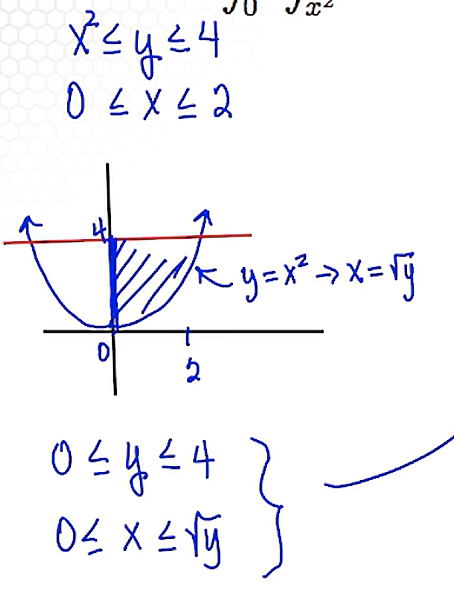 ∫0 ∫x²
x² ≤ y ≤ 4
0 ≤ x ≤ 2
4
y = x² → x = √y
0
2
0 ≤ y ≤ 4
0 ≤ x ≤ √y